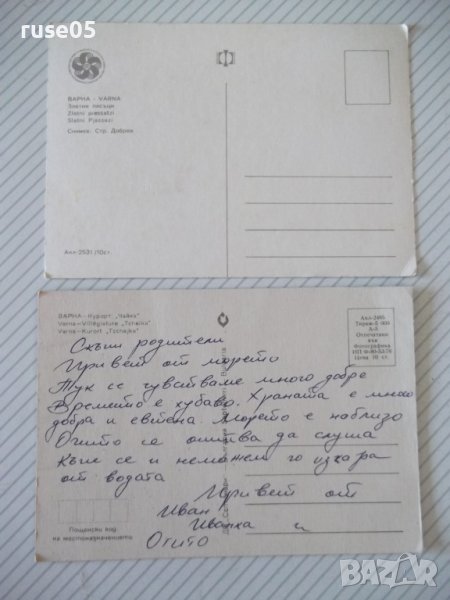 ruse05
ВАРНА - VARNA
Златни пясъци
Zlatni piassatzi
Slatni Pjassazi
Снимка: Стр. Добрев
Акл-2531/10ст.
ВАРНА-Курорт „Чайка"
Varna-Villégiature „Tchaïka"
Varna-Kurort „Tschajka"
Акл-2465
Отпечатано
във
Фотографика
Цена 10 ст.
Скъпи родители
Привет от морето
Тук се чувстваме много добре
Времето е хубаво. Храната е много
добра и евтена. Морето е наблизо
Огито се опитва да слуша
Къпе се и неможем го изкара
от водата
Привет от
Иван
Иванка и
Огито
Пощенски код
на местоназначението
BAZAR.bg